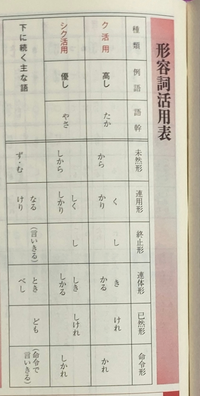 形容詞活用表
種類 例語 語幹 未然形 連用形 終止形 連体形 已然形 命令形
ク活用 高し たか から く かり し き かる けれ かれ
シク活用 優し やさ しから しく しかり し しき しかる しけれ しかれ
下に続く主な語 ず・む なる けり (言いきる) とき べし ども (命令で言いきる)